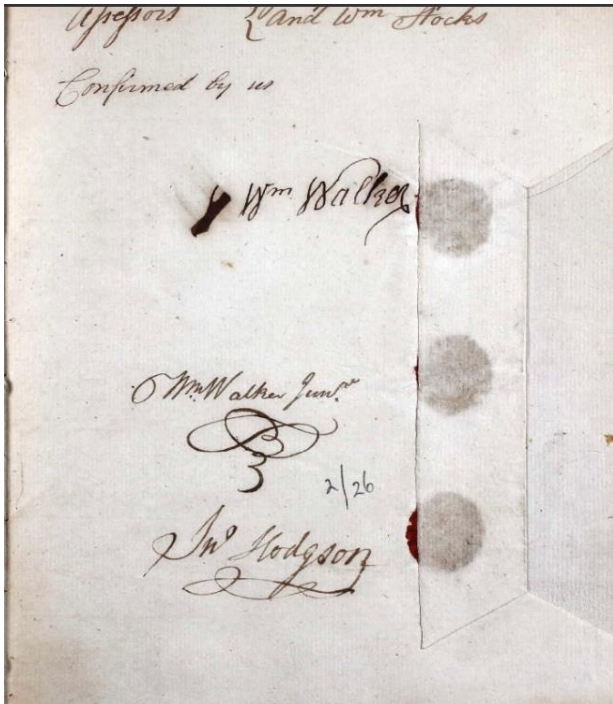 Assessors { and Wm Stocks
Confirmed by us
Wm Walker
Wm Walker Junr
2/26
Jno Hodgson